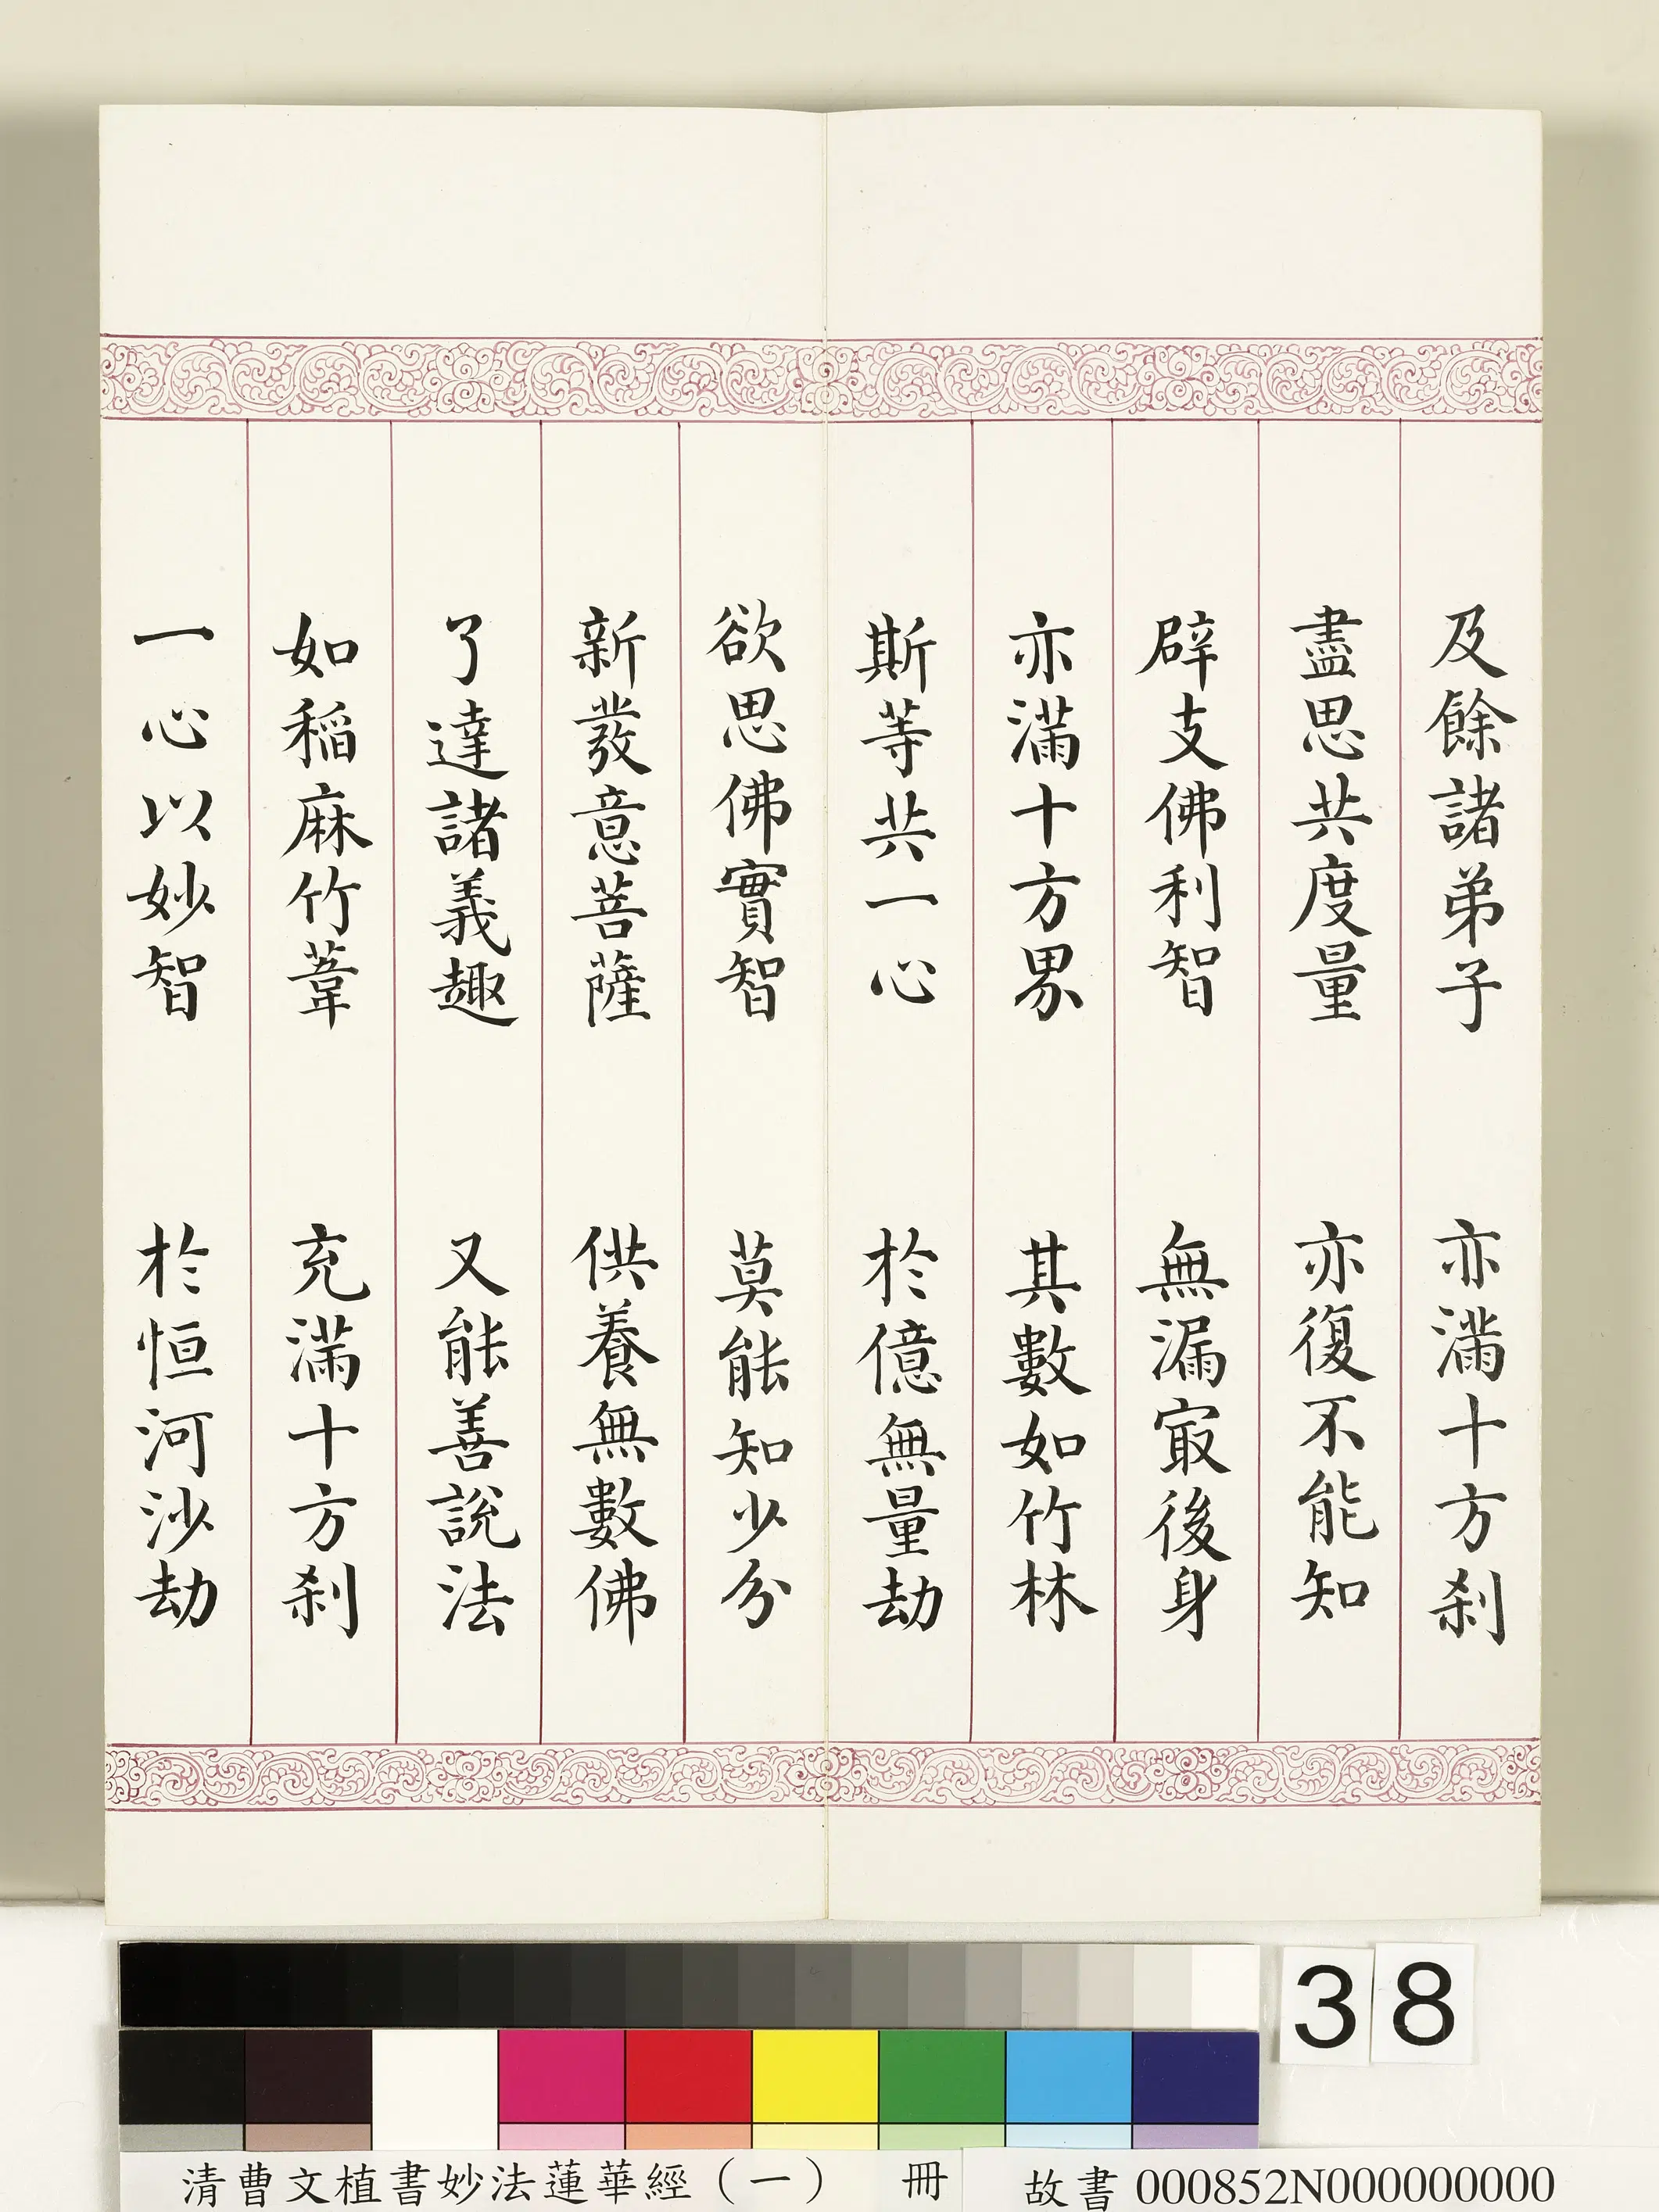 及餘諸弟子　亦滿十方刹
盡思共度量　亦復不能知
辟支佛利智　無漏㝡後身
亦滿十方界　其數如竹林
斯等共一心　於億無量劫
欲思佛實智　莫能知少分
新發意菩薩　供養無數佛
了達諸義趣　又能善說法
如稻麻竹葦　充滿十方刹
一心以妙智　於恒河沙劫
38
清曹文植書妙法蓮華經（一）　冊
故書 000852N000000000